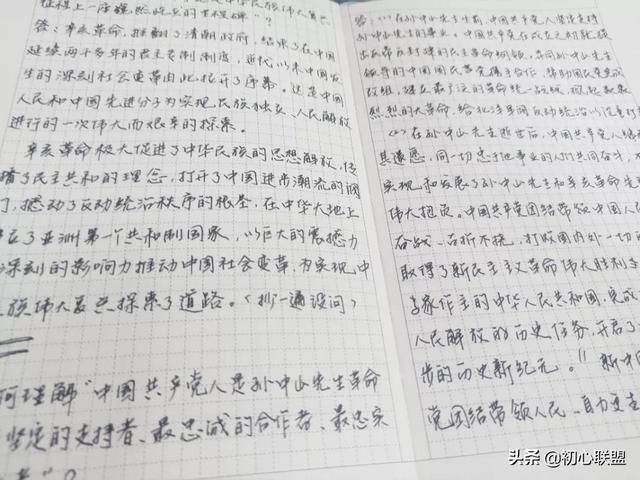 征程上一座巍然屹立的里程碑"?
答：辛亥革命，推翻了清朝政府，结束了在中国
延续两千多年的君主专制制度，近代以来中国发
生的深刻社会变革由此拉开了序幕。这是中国
人民和中国先进分子为实现民族独立、人民解放
进行的一次伟大而艰辛的探索。
辛亥革命极大促进了中华民族的思想解放，传
播了民主共和的理念，打开了中国进步潮流的闸
门，撼动了反动统治秩序的根基，在中华大地上
建立了亚洲第一个共和制国家，以巨大的震撼力
深刻的影响力推动中国社会变革，为实现中
族伟大复兴探索了道路。（抄一遍设问）
何理解"中国共产党人是孙中山先生革命
坚定的支持者、最忠诚的合作者、最忠实
者"？
答：(1)在孙中山先生生前，中国共产党人坚定支持
孙中山先生的事业。中国共产党在成立之初就提
出反帝反封建的民主革命纲领，并同孙中山先生
领导的中国国民党携手合作，帮助国民党完成
改组，建立最广泛的革命统一战线，掀起轰轰
烈烈的大革命，给北洋军阀反动统治以沉重打
(2)在孙中山先生逝世后，中国共产党人继
其遗愿，同一切忠于他事业的人们共同奋斗，
实现和发展了孙中山先生和辛亥革命先
伟大抱负。中国共产党团结带领中国人
奋战、百折不挠，打败国内外一切
取得了新民主主义革命伟大胜利
家作主的中华人民共和国，完成
人民解放的历史任务，开启了
步的历史新纪元。"新中
党团结带领人民、自力更生
头条@初心联盟